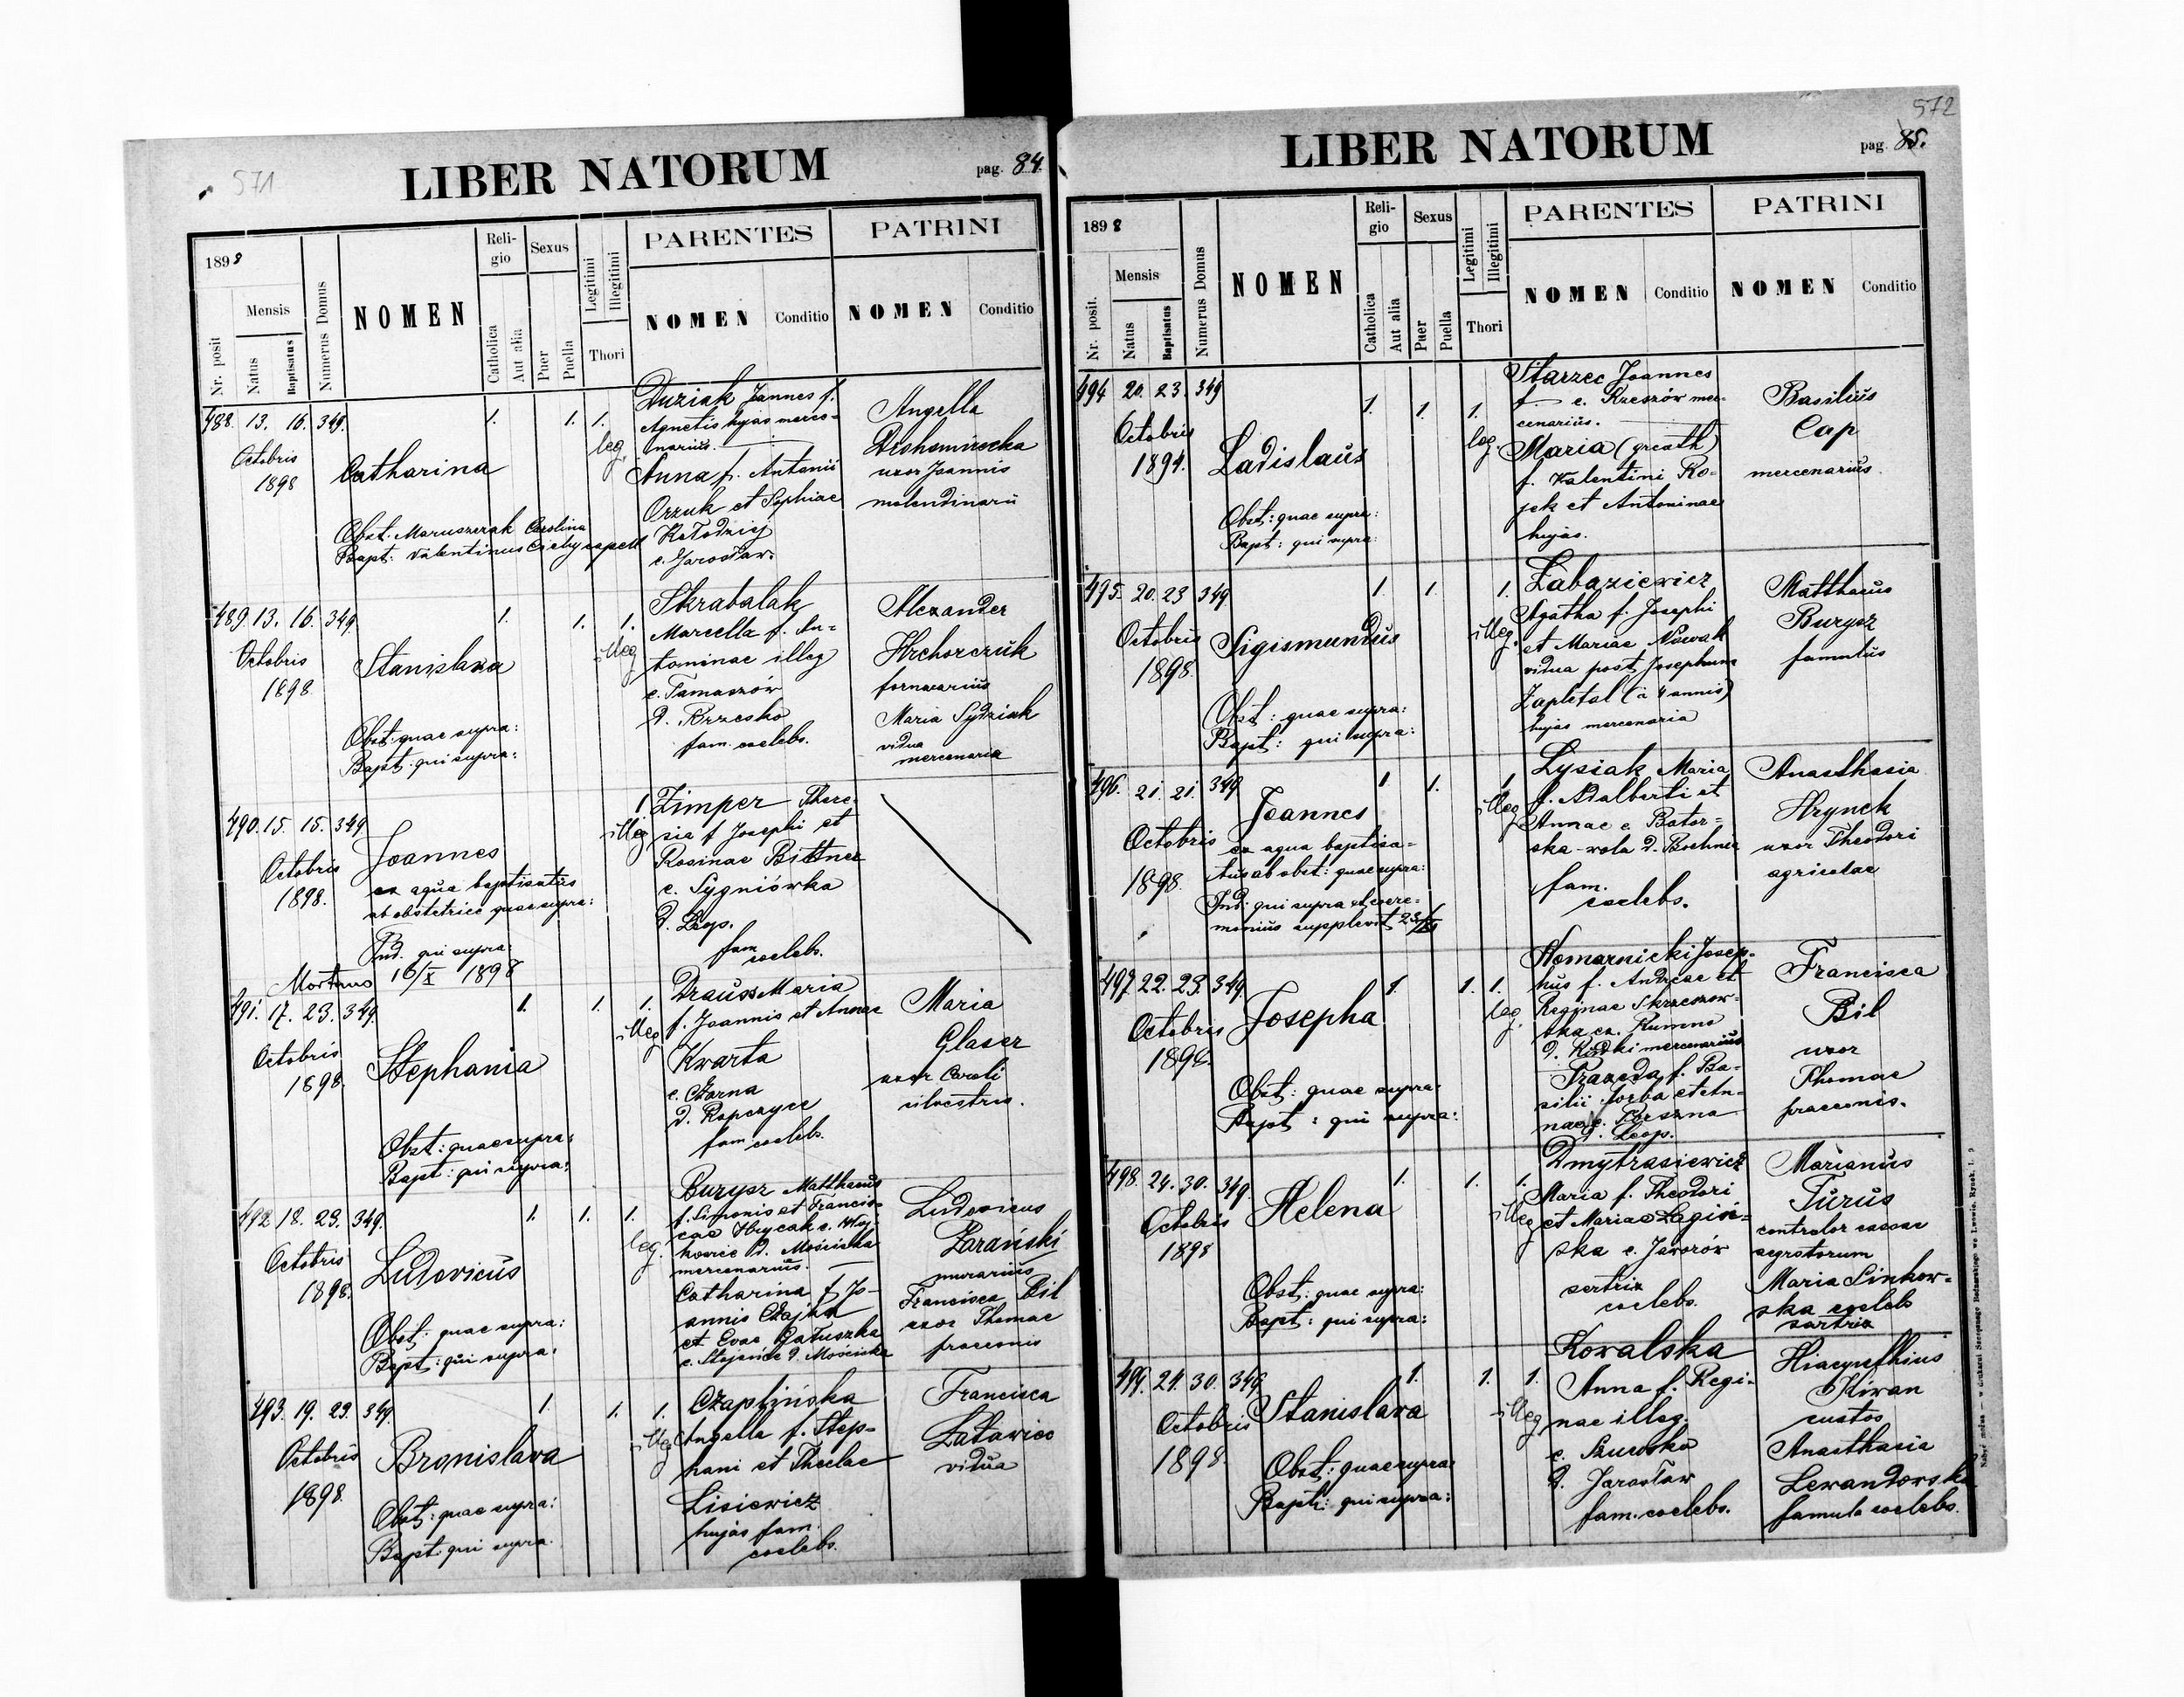 571
LIBER NATORUM
pag. 84.
1898
Mensis
Nr. posit
Natus
Baptisatus
Numerus Domus
NOMEN
Religio
Catholica
Aut alia
Sexus
Puer
Puella
Legitimi
Illegitimi
Thori
PARENTES
NOMEN
Conditio
PATRINI
NOMEN
Conditio
488. 13. 16. 349. 1. 1. 1.
Octobris
1898
Catharina
Obst. Maruszczak Carolina
Bapt: Valentinus Cichy
leg.
Duziak Joannes f.
Agnetis hujas merce-
narius.
Anna f. Antonii
et Sophiae
Kołodziej
e. Jarosław.
Angella
uxor Joannis
molendinarii
489. 13. 16. 349. 1. 1. 1.
Octobris
1898
Stanislava
Obst: quae supra:
Bapt: qui supra:
illeg
Skrabalak
Marcella f. An-
toninae illeg
e. Tamaszów
d. Brzesko
fam. coelebs.
Alexander
Hrehorczuk
Maria Sydziak
vidua
mercenaria
490. 15. 15. 349 1
Octobris
1898.
Joannes
ex aqua baptisatus
ab obstetrice quae supra:
Ind. qui supra:
Mortuus 16/X 1898
illeg
Zimper There-
sia f Josephi et
Rosinae Bittner
e. Sygniówka
d. Leop.
fam
coelebs.
491. 17. 23. 349. 1. 1. 1.
Octobris
1898.
Stephania
Obst: quae supra:
Bapt: qui supra:
illeg
Drauss Maria
f. Joannis et Annae
Kwarta
e. Czarna
d. Ropczyce
fam coelebs.
Maria
Glaser
uxor Caroli
silvestris.
492 18. 23. 349. 1. 1. 1.
Octobris
1898.
Ludovicus
Obst: quae supra:
Bapt: qui supra:
leg.
Burysz Matthaeus
f. Simonis et Francis-
cae Hrycak e. Woj-
kowice d. Mościska
mercenarius.
Catharina f. Jo-
annis Czajka
et Evae Gałuszka
e. Stojańce d. Mościska
Ludovicus
Zarański
murarius
Francisca Bil
uxor Thomae
praeconis
493. 19. 23. 349. 1. 1. 1.
Octobris
1898.
Bronislava
Obst: quae supra:
Bapt: qui supra.
illeg
Czaplińska
Angella f. Step-
hani et Theclae
Lisiewicz
hujas fam.
coelebs.
Francisca
vidua
572
LIBER NATORUM
pag. 85.
1898
Mensis
Nr. posit.
Natus
Baptisatus
Numerus Domus
NOMEN
Religio
Catholica
Aut alia
Sexus
Puer
Puella
Legitimi
Illegitimi
Thori
PARENTES
NOMEN
Conditio
PATRINI
NOMEN
Conditio
494 20. 23. 349 1. 1. 1.
Octobris
1898.
Ladislaus
Obst: quae supra:
Bapt: qui supra:
leg.
Starzec Joannes
f. — e. Rzeszów mer-
cenarius.
Maria
f. Valentini Ro-
jek et Antoninae
hujas.
Basilius
Cap
mercenarius.
495. 20. 23 349 1. 1. 1.
Octobris
1898.
Sigismundus
Obst: quae supra:
Bapt: qui supra:
illeg.
Łabaziewicz
Agatha f. Josephi
et Mariae Nowak
vidua post Josephum
Zapletal (à 4 annis)
hujas mercenaria
Matthaeus
Burysz
famulus
496. 21. 21. 349. 1. 1. 1
Octobris
1898.
Joannes
ex aqua baptisa-
tus ab obst: quae supra:
Ind: qui supra et cere-
monius supplevit 23/X
illeg
Lysiak Maria
f. Adalberti et
Annae e Bator-
ska-wola d. Bochnia
fam.
coelebs.
Anasthasia
Hrynck
uxor Theodori
agricolae
497 22. 23. 349. 1. 1. 1.
Octobris
1898.
Josepha
Obst: quae supra:
Bapt: qui supra:
leg.
Komarnicki Josep-
hus f. Andreae et
Reginae Skrzeszow-
ska ex. Rumno
d. Rudki mercenarius
Praxeda f. Ba-
silii Torba et An-
nae e.
d. Leop.
Francisca
Bil
uxor
Thomae
praeconis.
498. 24. 30. 349. 1. 1. 1.
Octobris
1898
Helena
Obst: quae supra:
Bapt: qui supra:
illeg
Dmytrasiewicz
Maria f. Theodori
et Mariae
ska e. Jaworów
sartrix
coelebs.
Marianus
Turus
controlor cassae
aegrotorum
Maria Linkow-
ska coelebs
sartrix
499. 24. 30. 349. 1. 1. 1.
Octobris
1898
Stanislava
Obst: quae supra:
Bapt: qui supra:
illeg
Kowalska
Anna f. Regi-
nae illeg.
e. Szuwsko
d. Jarosław
fam. coelebs.
Hiacynthius
Kiwan
custos
Anasthasia
Lewandowska
famula coelebs.